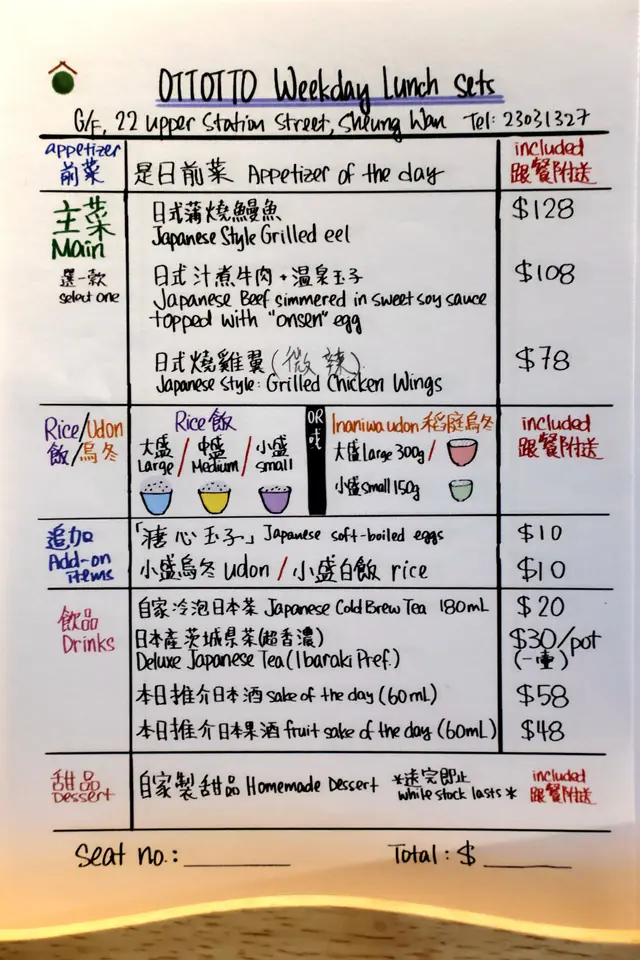 OTTOTTO Weekday Lunch sets
G/F, 22 upper Station Street, Sheung Wan Tel: 23031327
appetizer
前菜
是日前菜 Appetizer of the day
included
跟餐附送
主菜
Main
選一款
select one
日式蒲燒鰻魚
Japanese Style Grilled eel
$128
日式汁煮牛肉+溫泉玉子
Japanese Beef simmered in sweet soy sauce
topped with "onsen" egg
$108
日式燒雞翼(微辣)
Japanese Style: Grilled Chicken Wings
$78
Rice/Udon
飯/烏冬
Rice飯
大盛/中盛/小盛
Large/Medium/small
OR
或
Inaniwa udon 稻庭烏冬
大盛 Large 300g/
小盛 small 150g
included
跟餐附送
追加
Add-on
items
「溏心玉子」 Japanese soft-boiled eggs
$10
小盛烏冬 udon / 小盛白飯 rice
$10
飲品
Drinks
自家冷泡日本茶 Japanese Cold Brew Tea 180mL
$20
日本產茨城県茶(超香濃)
Deluxe Japanese Tea (Ibaraki Pref.)
$30/pot
(一壺)
本日推介日本酒 sake of the day (60mL)
$58
本日推介日本果酒 fruit sake of the day (60mL)
$48
甜品
Dessert
自家製甜品 Homemade Dessert
*送完即止
while stock lasts*
included
跟餐附送
Seat no.: ________
Total: $ ________